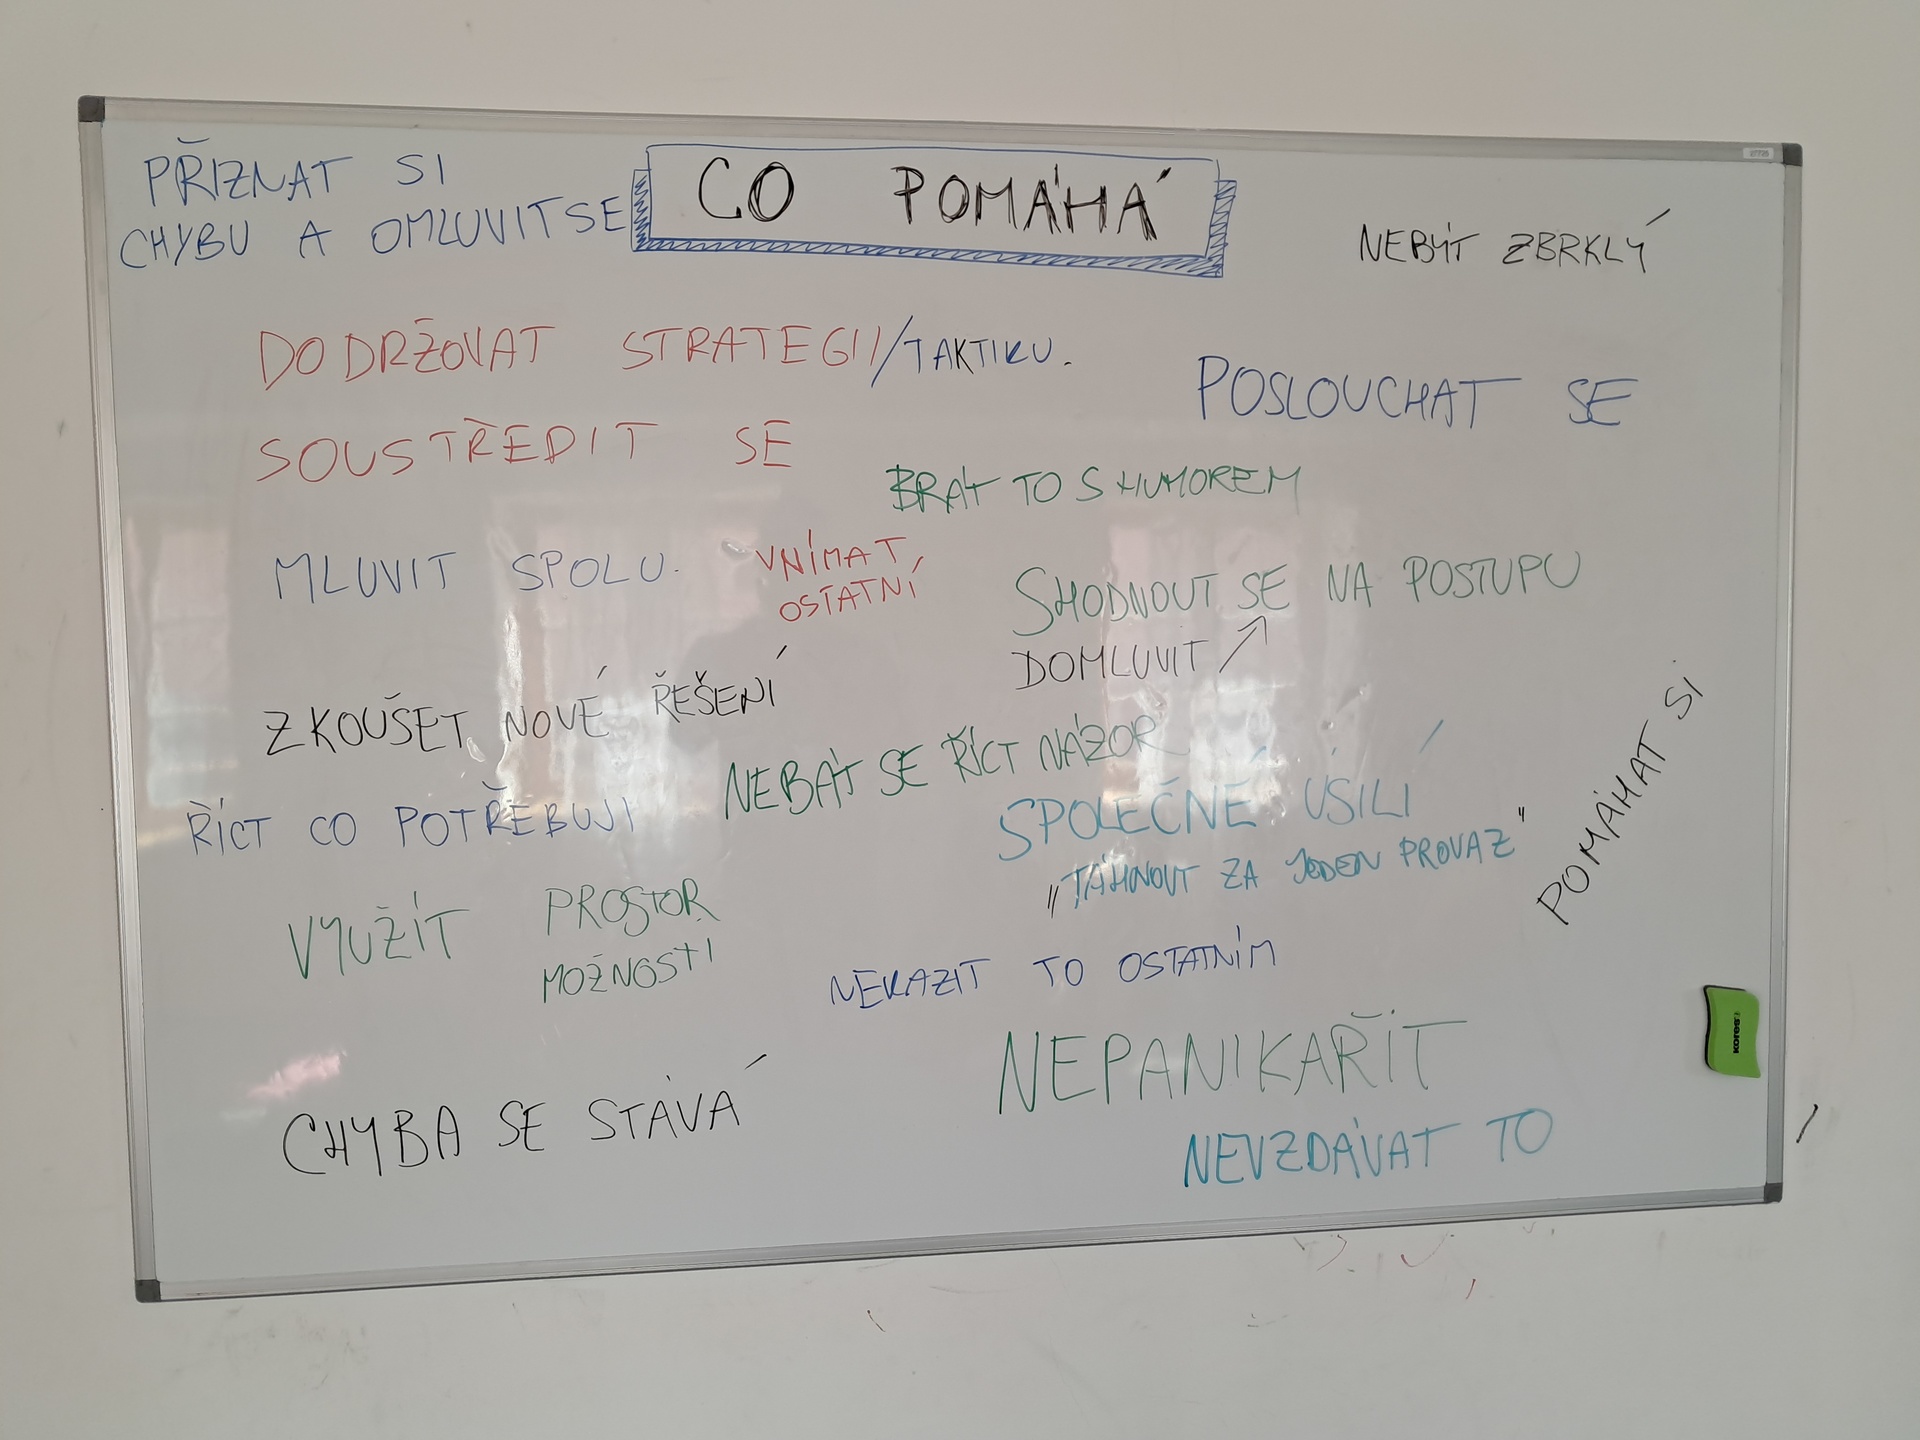 CO POMÁHÁ
PŘIZNAT SI
CHYBU A OMLUVIT SE
NEBÝT ZBRKLÝ
DODRŽOVAT STRATEGII/TAKTIKU.
POSLOUCHAT SE
SOUSTŘEDIT SE
BRÁT TO S HUMOREM
MLUVIT SPOLU.
VNÍMAT
OSTATNÍ
SHODNOUT SE NA POSTUPU
DOMLUVIT ↗
ZKOUŠET NOVÉ ŘEŠENÍ
NEBÁT SE ŘÍCT NÁZOR
POMÁHAT SI
ŘÍCT CO POTŘEBUJI
SPOLEČNÉ ÚSILÍ
„TÁHNOUT ZA JEDEN PROVAZ"
VYUŽÍT PROSTOR
MOŽNOSTI
NEKAZIT TO OSTATNÍM
NEPANIKAŘIT
CHYBA SE STÁVÁ
NEVZDÁVAT TO
Kores